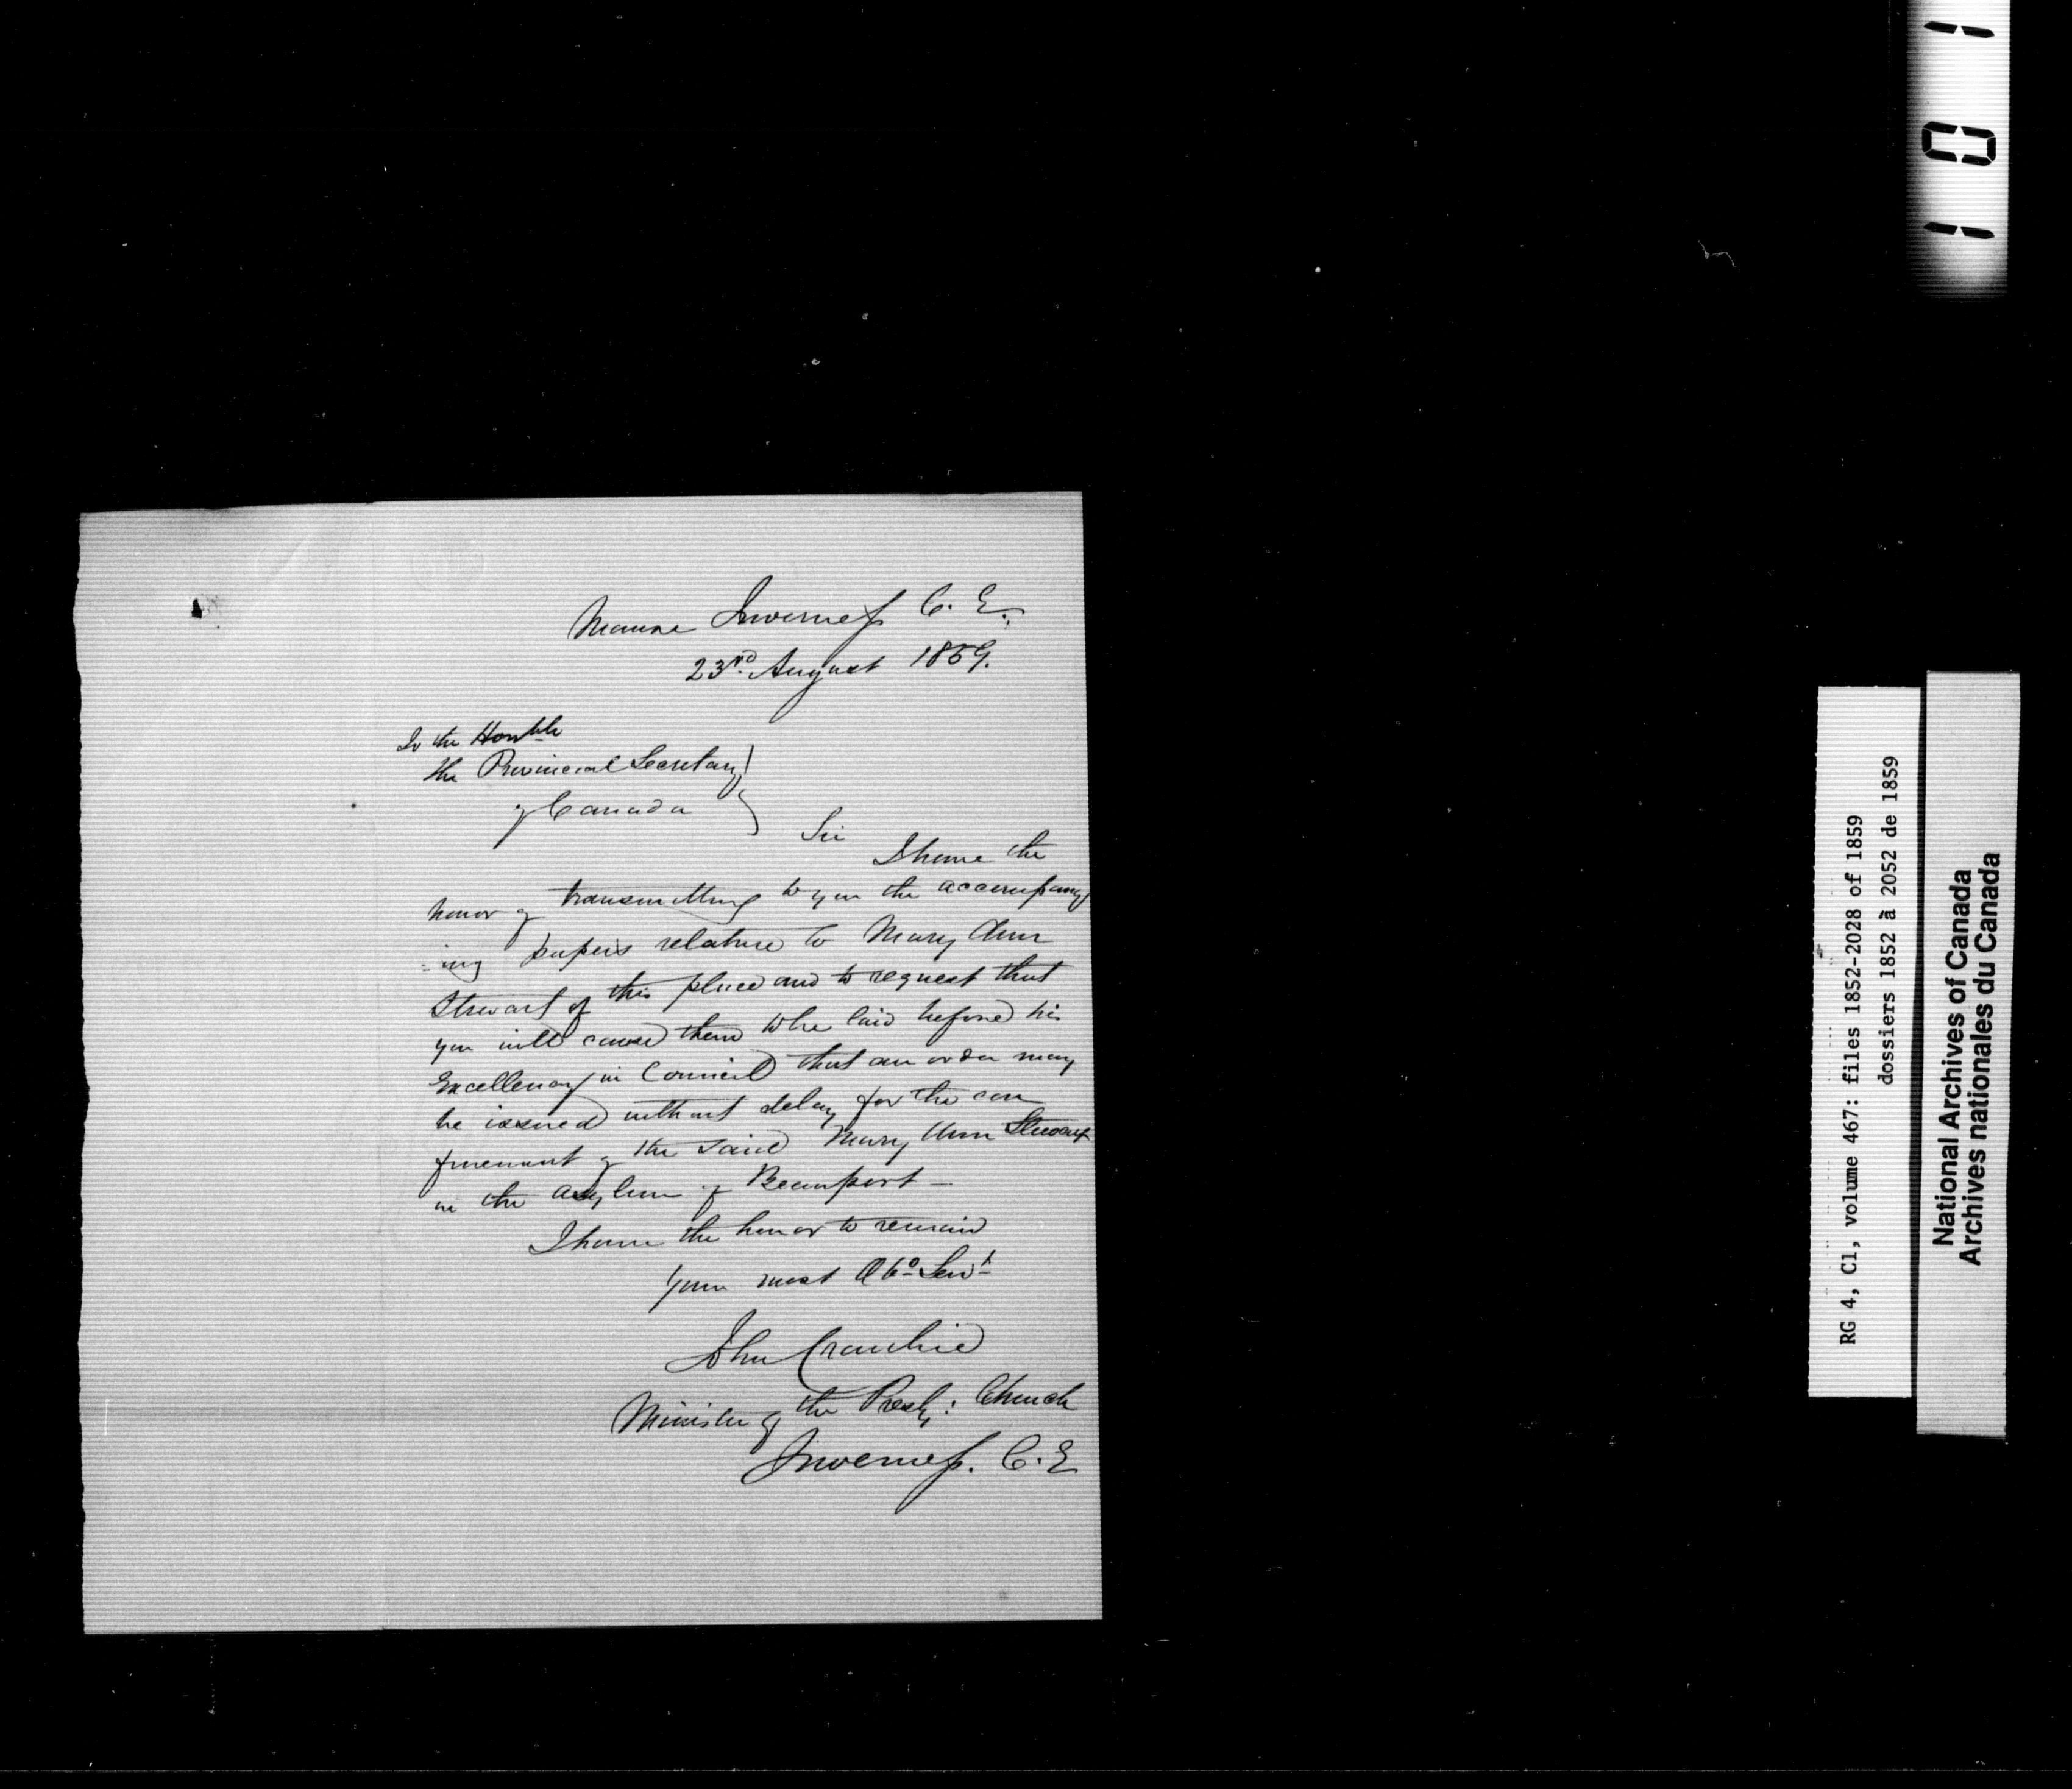 Manse Inverness C. E.
23rd August 1859.
To the Honble
the Provincial Secretary
of Canada
Sir
I have the
honor of transmitting to you the accompany
=ing papers relative to Mary Ann
Stewart of this place and to request that
you will cause them to be laid before his
Excellency in Council that an order may
be issued without delay for the con
finement of the said Mary Ann Stewart
in the asylum of Beauport –
I have the honor to remain
Your most Obt Servt
John Crombie
Minister of the Presby: Church
Inverness. C. E
101
RG 4, C1, volume 467: files 1852-2028 of 1859
dossiers 1852 à 2052 de 1859
National Archives of Canada
Archives nationales du Canada